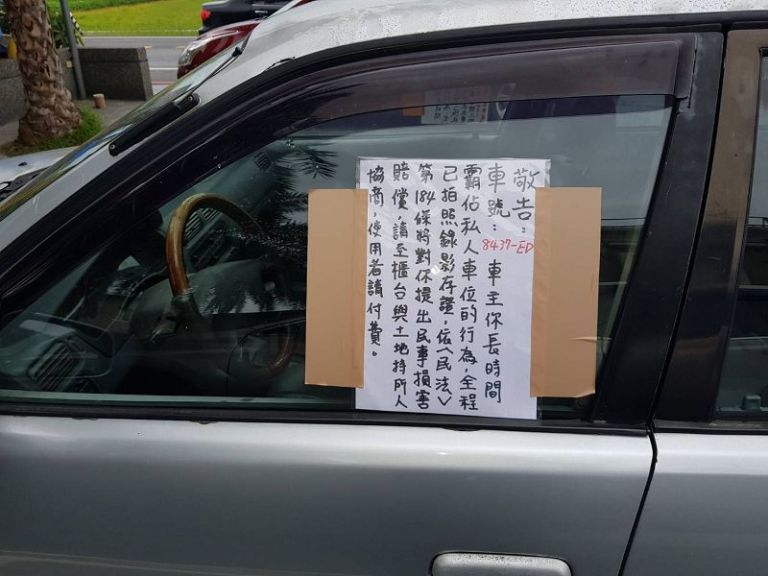 敬告：
車號：8437-ED 車主你長時間
霸佔私人車位的行為，全程
已拍照錄影存證，依〈民法〉
第184條將對你提出民事損害
賠償，請至櫃台與土地持所人
協商，使用者請付費。